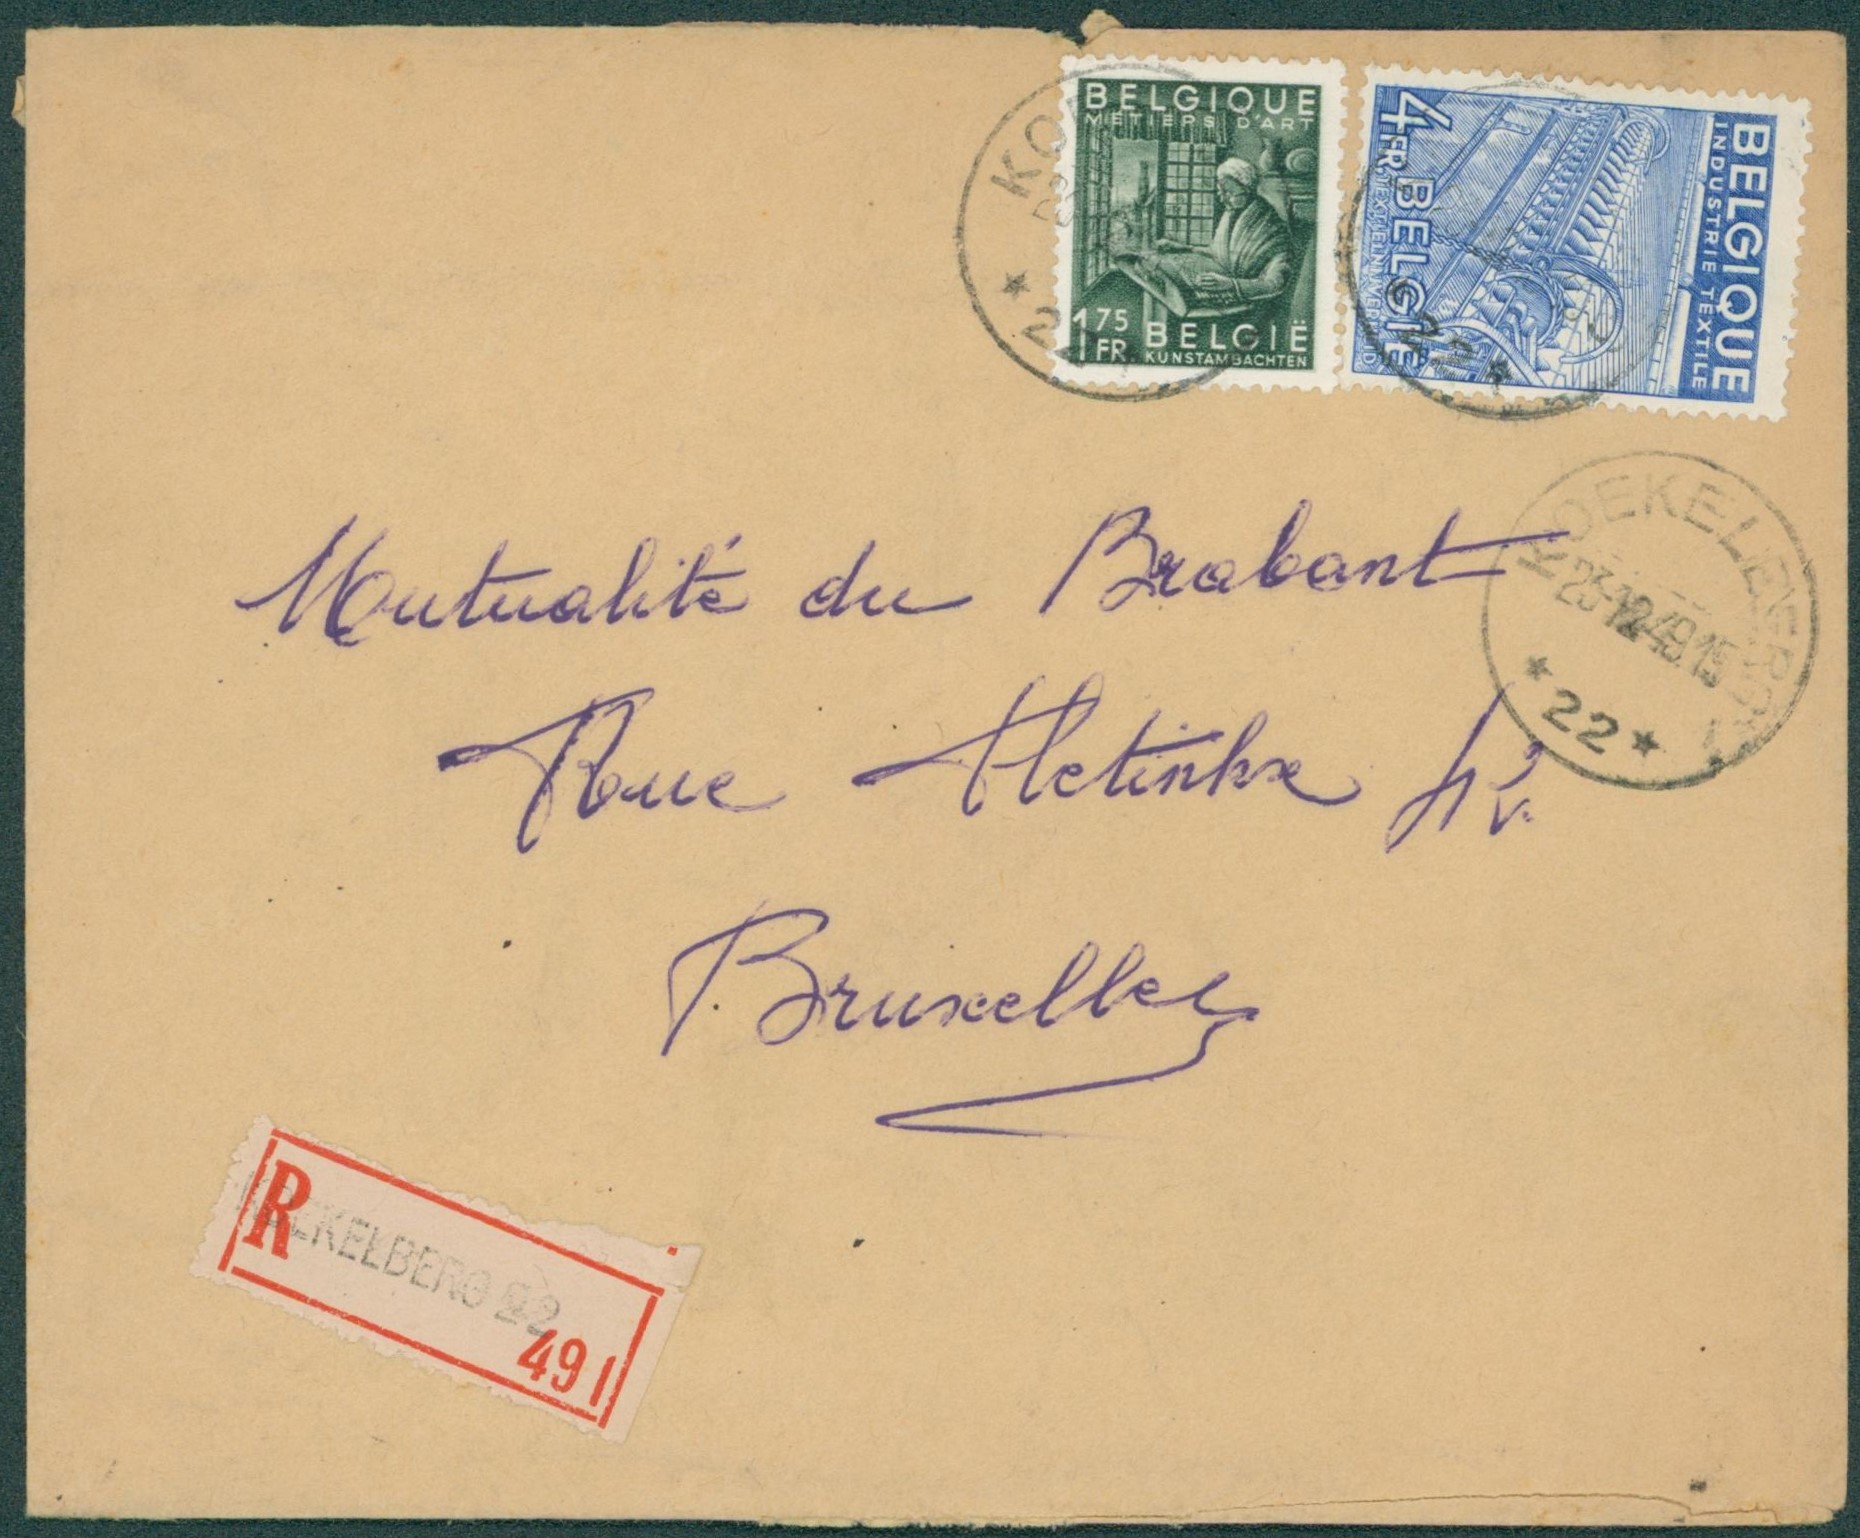 BELGIQUE
METIERS D'ART
1 75 FR. BELGIË
KUNSTAMBACHTEN
BELGIQUE
INDUSTRIE TEXTILE
4 FR BELGIË
TEXTIELNIJVERHEID
22
KOEKELBERG
23-12-49 15
* 22 *
Mutualité du Brabant
Rue
Bruxelles
R
KOEKELBERG 22
491